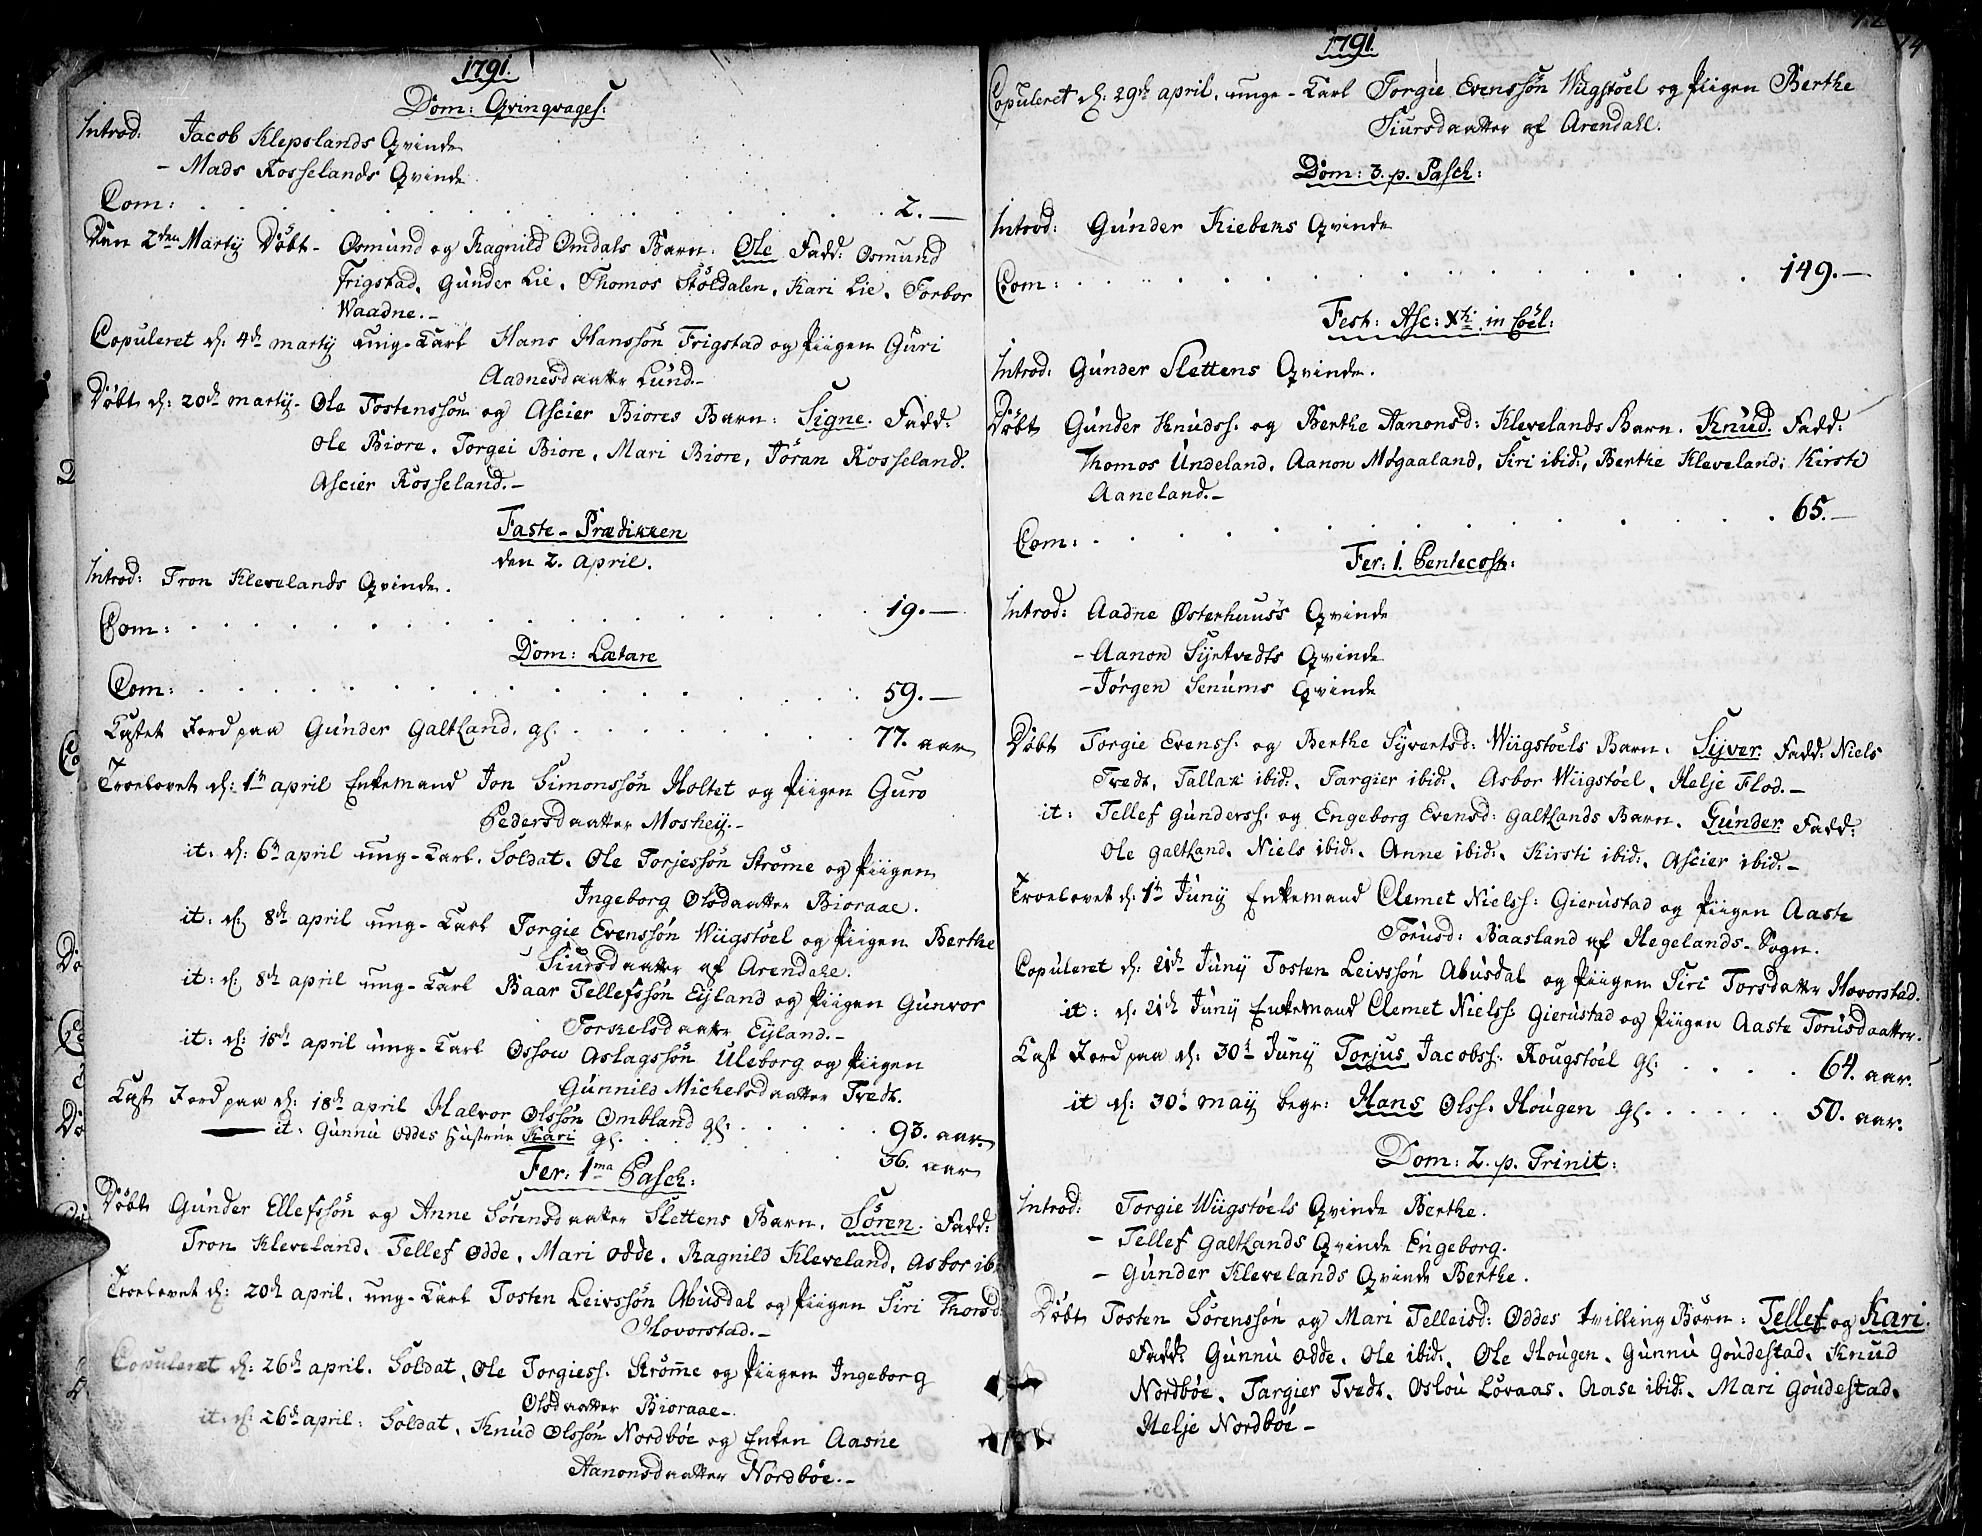 1791.
Dom: Qvinqvages:
Introd: Jacob Klepslands Qvinde
- Mads Rosselands Qvinde
Com: 2.-
Den 2den Martij Döbt- Osmund og Ragnild Omdals Barn: Ole Fadd: Osmund
Frigstad, Gunder Lie, Thomos Stöldalen, Kari Lie, Torbor
Waadne.-
Copuleret d: 4de martij ung-Karl Hans Hanssön Frigstad og Piigen Guri
Aadnesdaatter Lund.-
Döbt d: 20de martij- Ole Tostenssön og Ascier Biores Barn: Signe. Fadd:
Ole Biore, Torgei Biore, Mari Biore, Jöran Rosseland.
Ascier Rosseland.-
Faste-Prædikken
den 2. April.
Introd: Tron Klevelands Qvinde.
Com: 19.-
Dom: Lætare
Com: 59.-
Kastet Jord paa Gunder Galtland, gl. 77. aar
Troelovet d: 1te april Enkemand Jon Simonssön Holtet og Piigen Guro
Pedersdaatter Moskeij.-
it. d: 6te april ung-Karl. Soldat. Ole Torjessön Strøme og Piigen
Ingeborg Olsdaatter Bioraae.
it: d: 8de april ung-Karl Torgie Evenssön Wiigstöel og Piigen Berthe
Siursdaatter af Arendahl.
it: d: 8de april ung-Karl Baar Tellefssön Eijland og Piigen Gunvor
Torkelsdaatter Eijland.-
it: d: 15de april ung-Karl Ossow Aslagssön Uleborg og Piigen
Gunnild Michelsdaatter Tvedt.
Kast Jord paa d: 18de april Halvor Olssön Ombland gl: 93. aar
it: Gunnu Oddes Hustrue Kari gl. 36. aar
Fer: 1ma Pasch:
Döbt Gunder Ellefssön og Anne Sörensdaatter Slettens Barn. Sören. Fadd:
Tron Kleveland, Tellef Odde, Mari Odde, Ragnild Kleveland, Asbor ib:
Troelovet d: 20de april, ung-Karl Tosten Leivssön Abusdal og Piigen Siri Thorsd
Hovorstad.-
Copuleret d: 26de april. Soldat, Ole Torgiess. Strøm̄e og Piigen Ingeborg
Olsdaatter Bioraae-.
it. d: 26de april: Soldat, Knud Olssön Nordböe og Enken Aasne
Aanonsdaatter Nordböe.-
1791.
Copuleret d: 29de april, unge-Karl Torgie Evenssön Wiigstöel og Piigen Berthe
Siursdaatter af Arendahl.
Dom: 3. p. Pasch:
Introd: Gunder Kiebens Qvinde
Com: 149.-
Fest: Asc: Xti in Coel:
Introd: Gunder Slettens Qvinde.
Döbt Gunder Knudss. og Berthe Aanonsd: Klevelands Barn. Knud. Fadd:
Thomos Undeland, Aanon Møgaaland, Siri ibid:, Berthe Kleveland: Kirsti
Aaneland.-
Com: 65.-
Fer: 1. Pentecost:
Introd: Aadne Østerhuus's Qvinde
- Aanon Sijrtvedts Qvinde
- Jørgen Senums Qvinde
Döbt Torgie Evenss. og Berthe Sijvertsd: Wiigstöels Barn. Sijver. Fadd: Niels
Tvedt, Tallak ibid:, Targier ibid:, Asbor Wiigstöel, Helje Flod.-
it: Tellef Gunderss: og Engeborg Evensd: Galtlands Barn. Gunder Fadd:
Ole Galtland, Niels ibid:, Anne ibid:, Kirsti ibid:, Ascier ibid.-
Troelovet d: 1te Junij Enkemand Clemet Nielss: Gierustad og Piigen Aaste
Torusd: Baasland af Hegelands-Sogn.
Copuleret d: 21de Junij Tosten Leivssön Abusdal og Piigen Siri Torsdatter Hovorstad.
it: d: 21de Junij Enkemand Clemet Nielss: Gierustad og Piigen Aaste Torusdaatter.
Kast Jord paa d: 30t Junij Torjus Jacobss: Rougstöel gl: 64. aar.
it d: 30t maij begr: Hans Olss. Hougen gl. 50. aar.
Dom: 2. p. Trinit:
Introd: Torgie Wiigstöels Qvinde Berthe.
- Tellef Galtlands Qvinde Engeborg.
- Gunder Klevelands Qvinde Berthe.
Döbt Tosten Sörenssön og Mari Telleisd: Oddes tvilling Börn: Tellef og Kari.
Fadd: Gunnu Odde, Ole ibid:, Ole Hougen, Gunnu Goudestad, Knud
Nordböe, Targier Tvedt, Oslou Lovaas, Aase ibid:, Mari Goudestad,
Helje Nordböe-